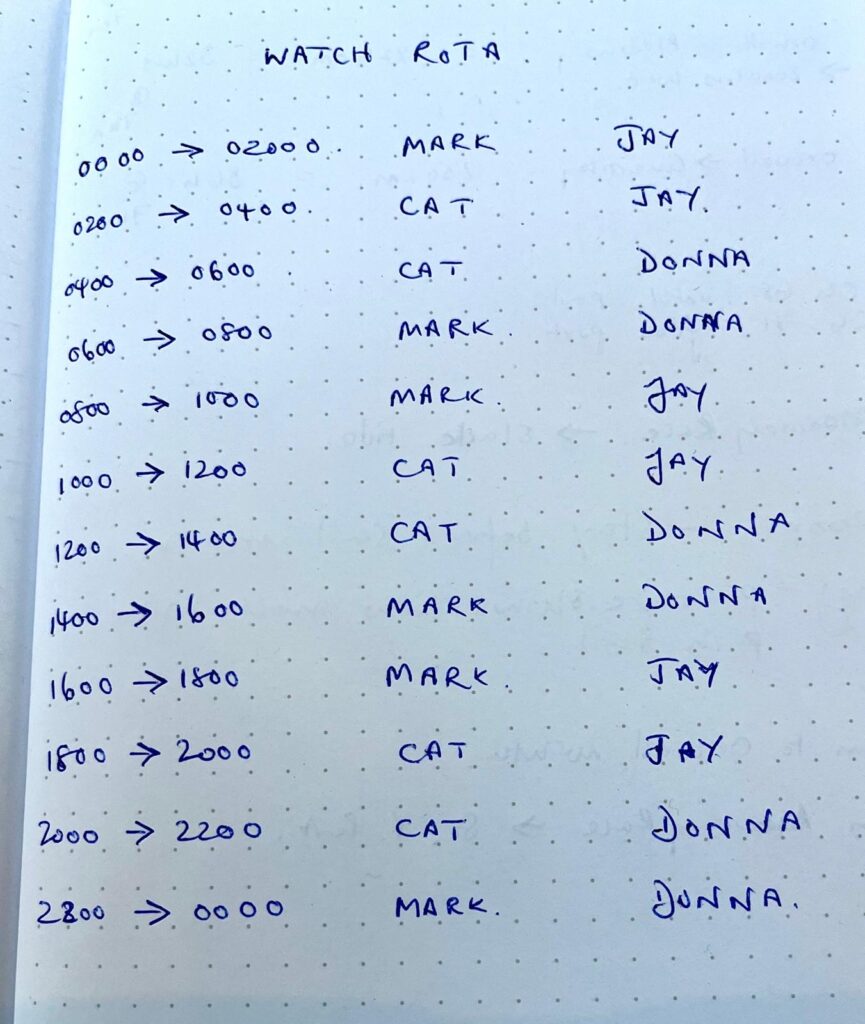 WATCH ROTA
0000 → 02000. MARK JAY
0200 → 0400. CAT JAY.
0400 → 0600 CAT DONNA
0600 → 0800 MARK. DONNA
0800 → 1000 MARK. JAY
1000 → 1200 CAT JAY
1200 → 1400 CAT DONNA
1400 → 1600 MARK DONNA
1600 → 1800 MARK. JAY
1800 → 2000 CAT JAY
2000 → 2200 CAT DONNA
2200 → 0000 MARK. DONNA.